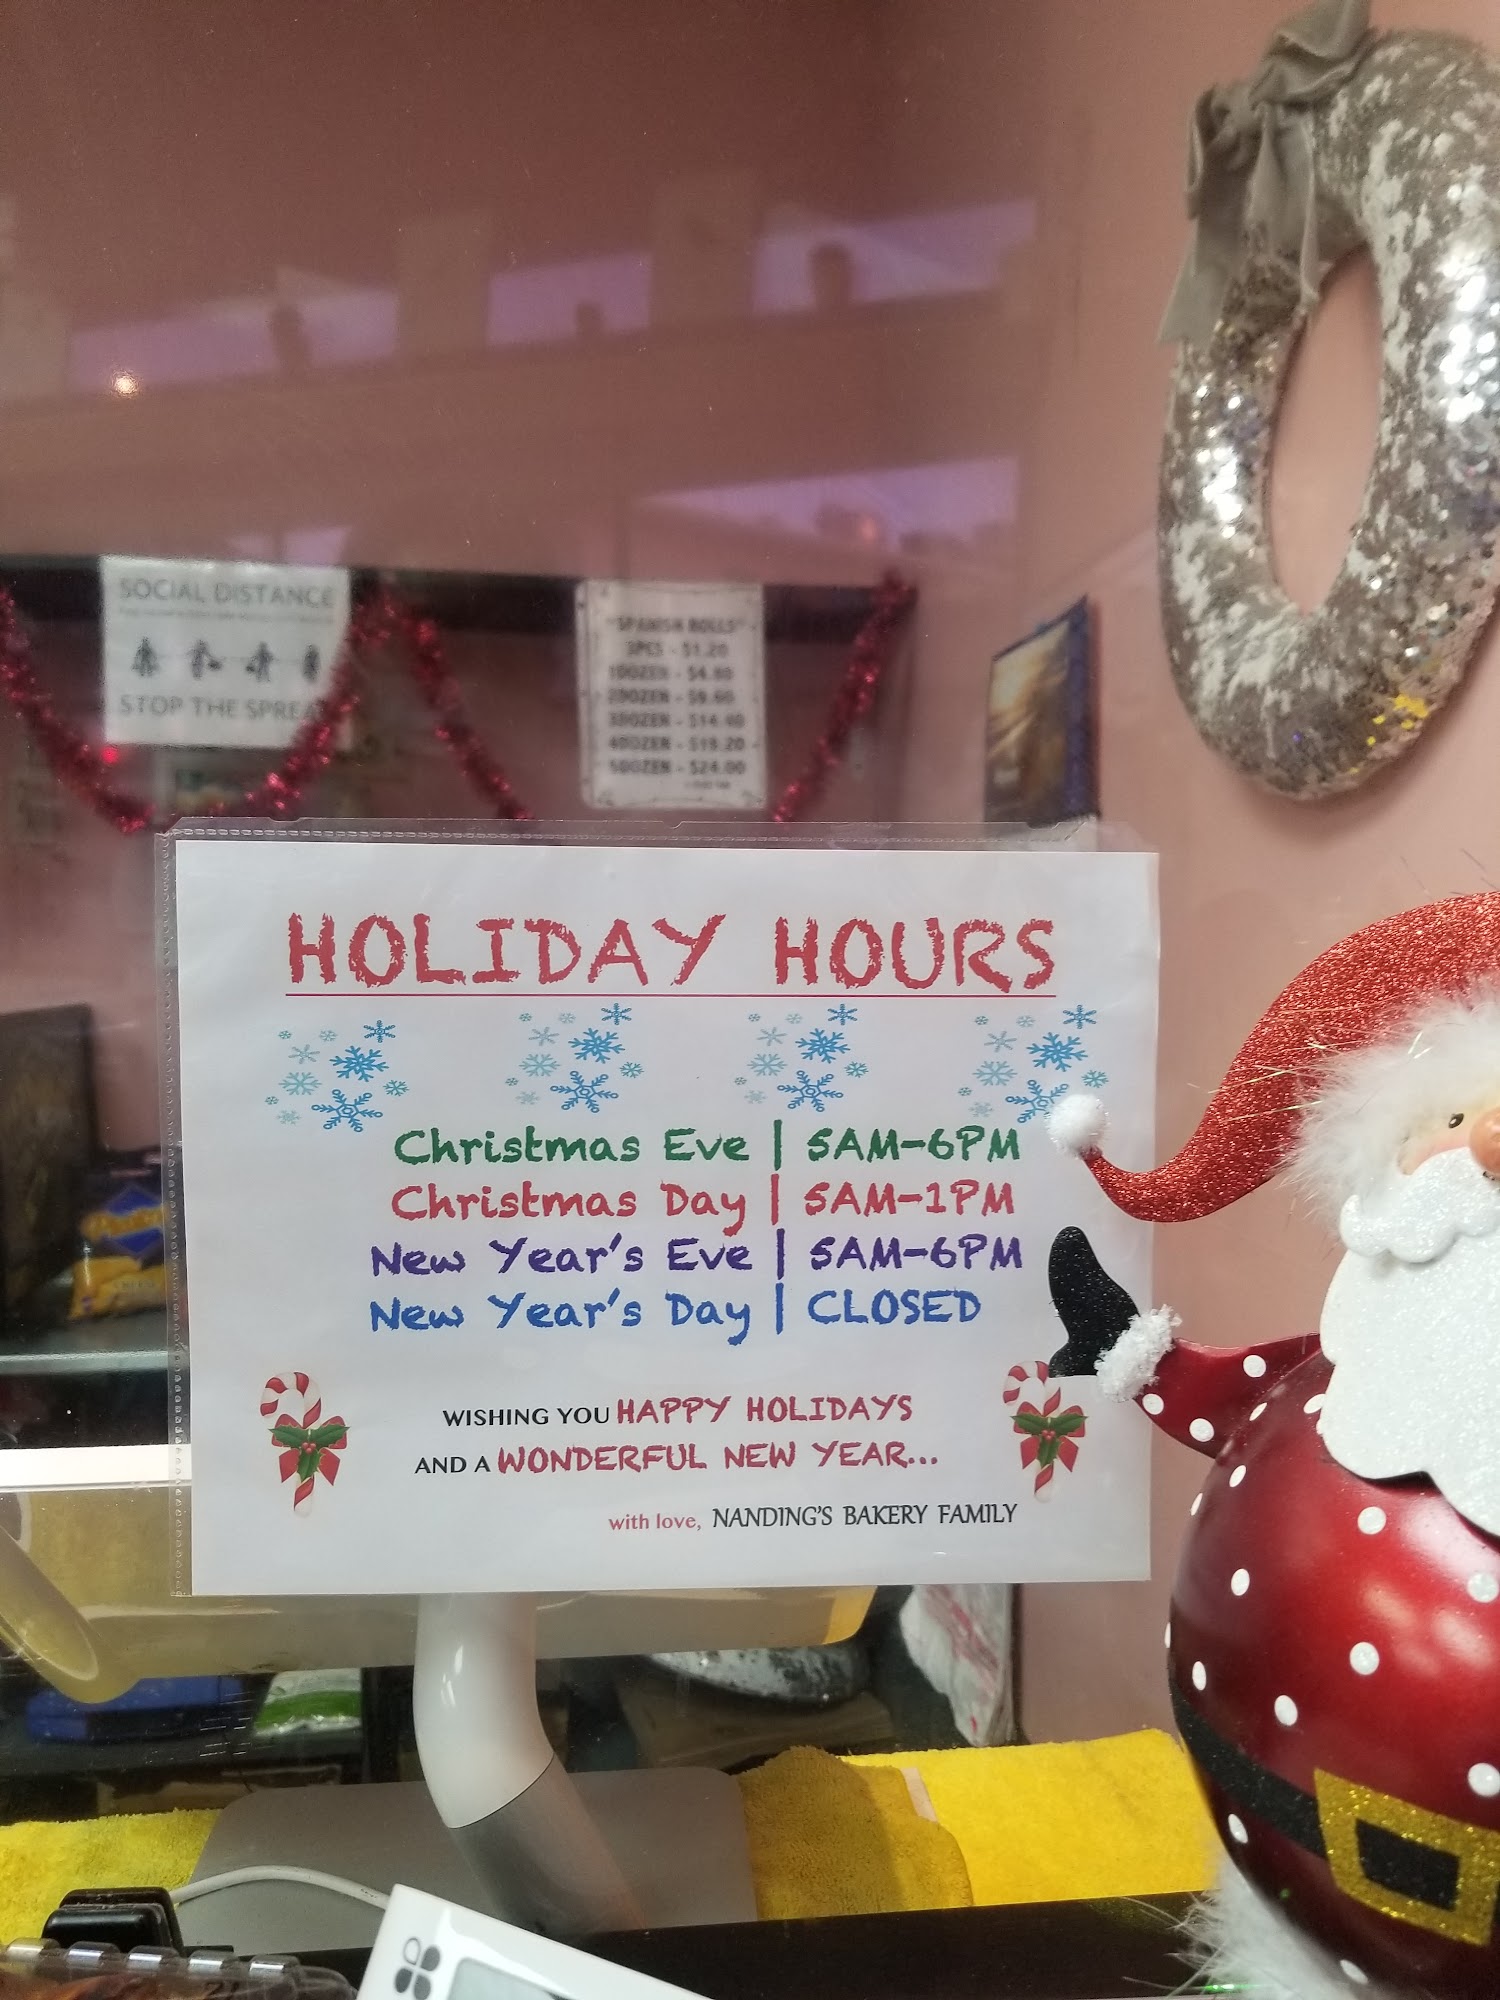 SOCIAL DISTANCE
STOP THE SPREA
"SPANISH ROLLS"
3PCS - $1.20
1DOZEN - $4.80
2DOZEN - $9.60
3DOZEN - $14.40
4DOZEN - $19.20
5DOZEN - $24.00
HOLIDAY HOURS
Christmas Eve | 5AM-6PM
Christmas Day | 5AM-1PM
New Year's Eve | 5AM-6PM
New Year's Day | CLOSED
WISHING YOU HAPPY HOLIDAYS
AND A WONDERFUL NEW YEAR...
with love, NANDING'S BAKERY FAMILY